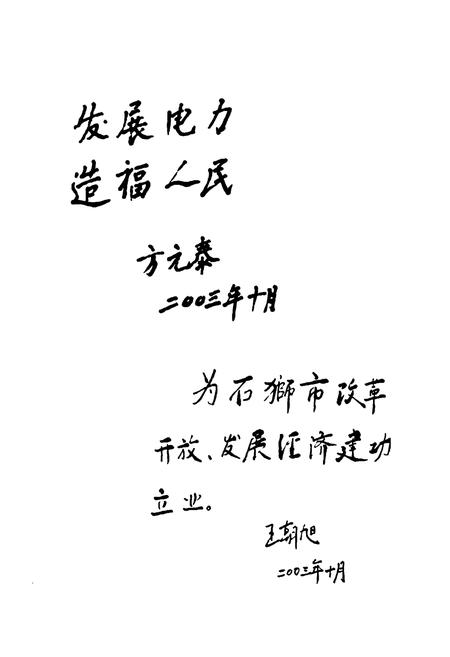 发展电力
造福人民
方元泰
二〇〇三年十月
为石狮市改革
开放、发展经济建功
立业。
王朝旭
二〇〇三年十月